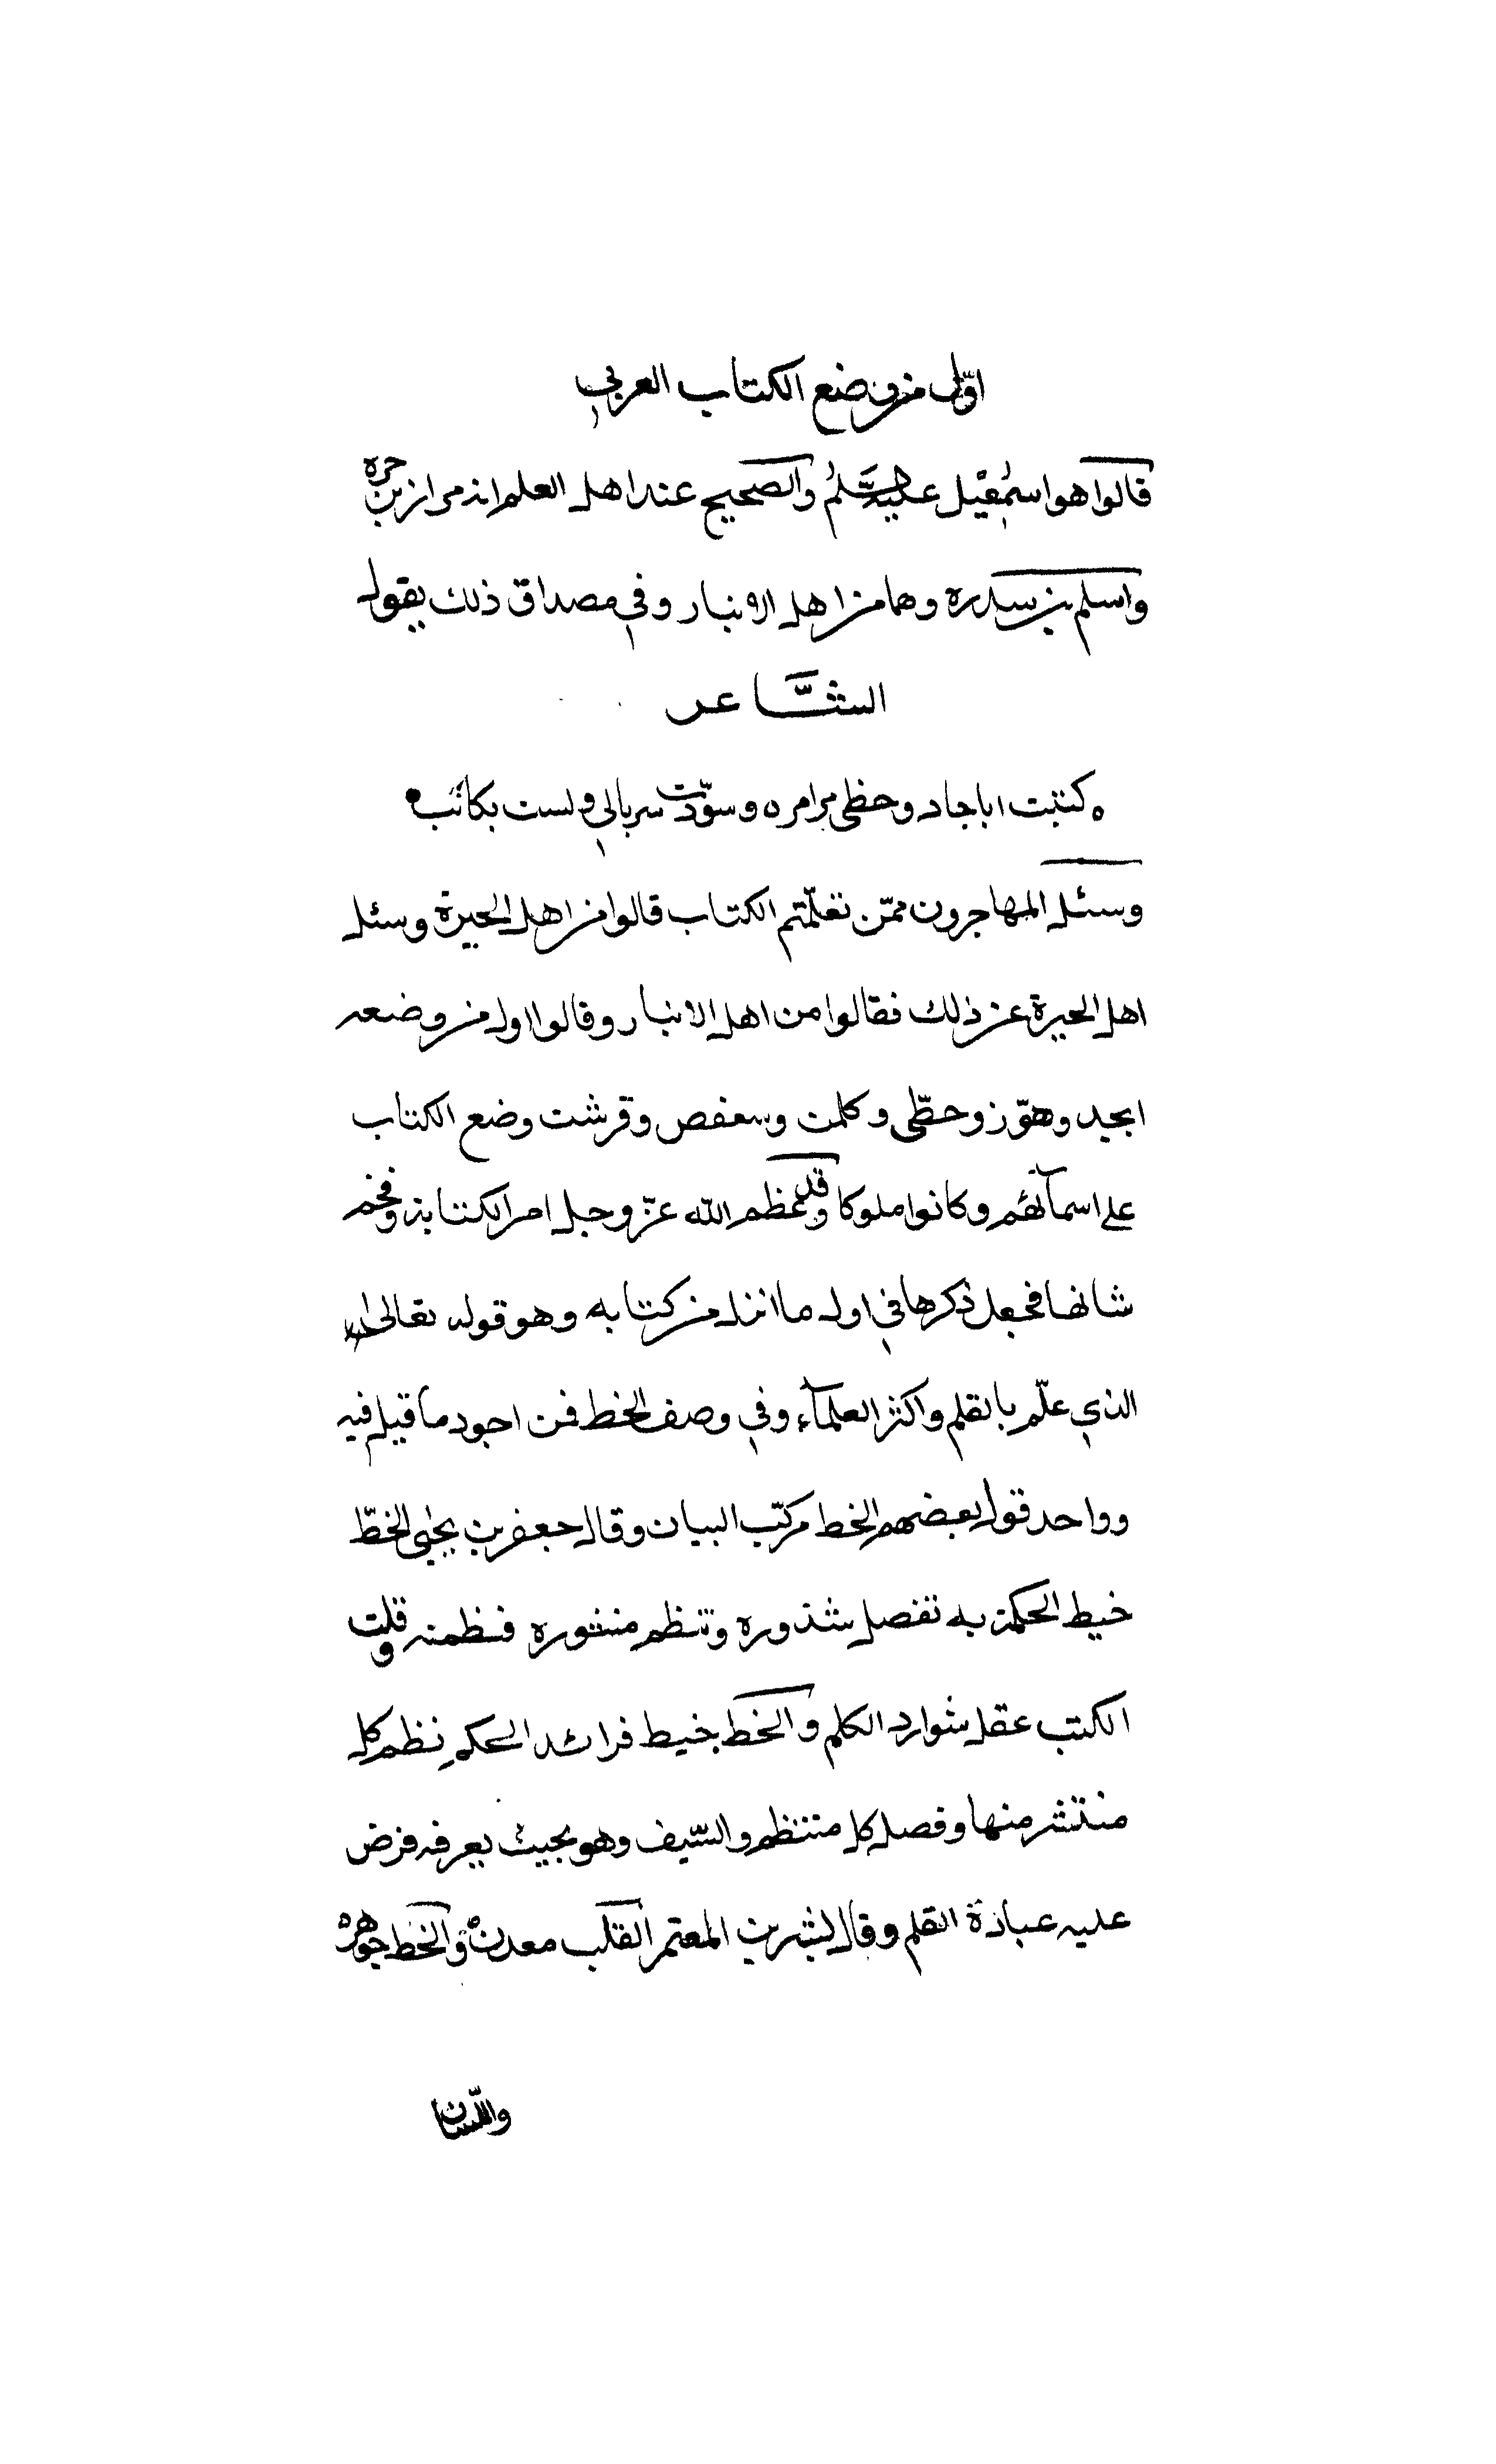 اوّل من وضع الكتاب العربي
قالوا هو اسمعيل عليه السّلم والصحيح عند اهل العلم انه مرامر بن مره
واسلم بن سدره وهما من اهل الانبار وفي مصداق ذلك يقول
الشّاعر
كتبت اباجاد وحظي مرامره وسوّدت سربالي ولست بكاتب
وسئل المهاجرون ممّن تعلّمتم الكتاب قالوا من اهل الحيرة وسئل
اهل الحيرة عن ذلك فقالوا من اهل الانبار وقالوا اول من وضعه
ابجد وهوّز وحطّي وكلمن وسعفص وقرشت وضع الكتاب
على اسمآئهم وكانوا ملوكا وقد عظم الله عزّ وجل امر الكتابة وفخم
شانها فجعل ذكرها في اول ما انزل من كتابه وهو قوله تعالى
الذي علّم بالقلم واكثر العلمآء في وصف الخط فمن اجود ما قيل فيه
وواحد قول بعضهم الخط مركّب البيان وقال جعفر بن يحيى الخطّ
خيط الحكمة به تفصل شذوره وتنظم منثوره فنظمته وقلت
الكتب عقل شوارد الكلم والخط خيط فرائد الحكم نظم كل
منتثر منها وفصل كل منتظم والسّيف وهو بحيث يعرفه فرض
عليه عبادة القلم وقال بشر بن المعتمر القلب معدن والخط جوهر
واللّسان